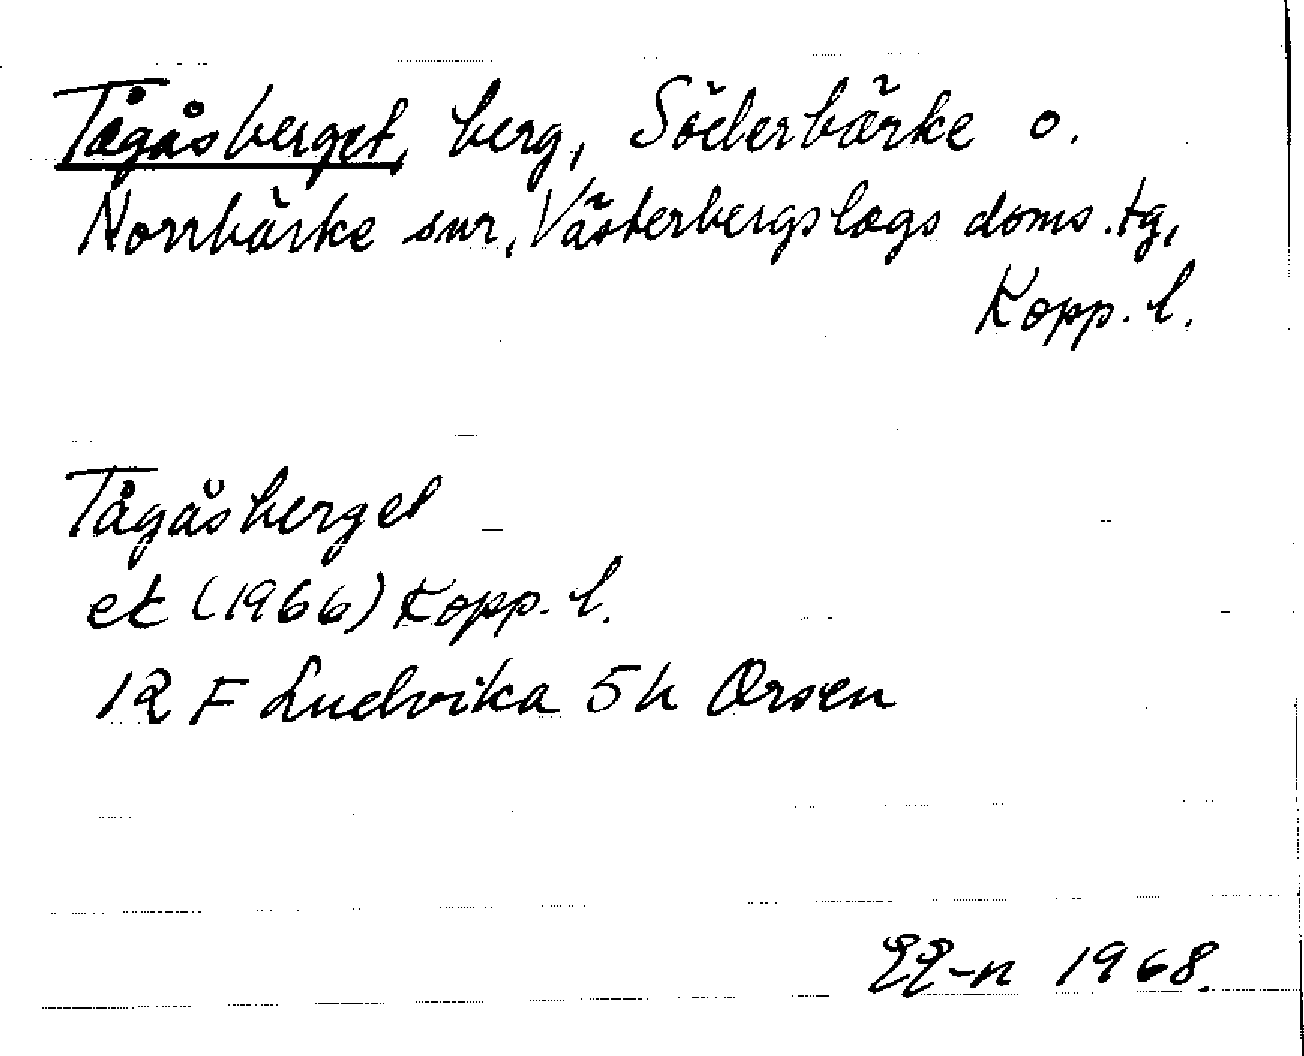 Tågåsberget, berg, Söderbärke o.
Norrbärke snr, Västerbergslags doms.tg,
Kopp. l.
Tågåsberget
ek (1966) Kopp. l.
12 F Ludvika 5h Orsen
EE-n 1968.